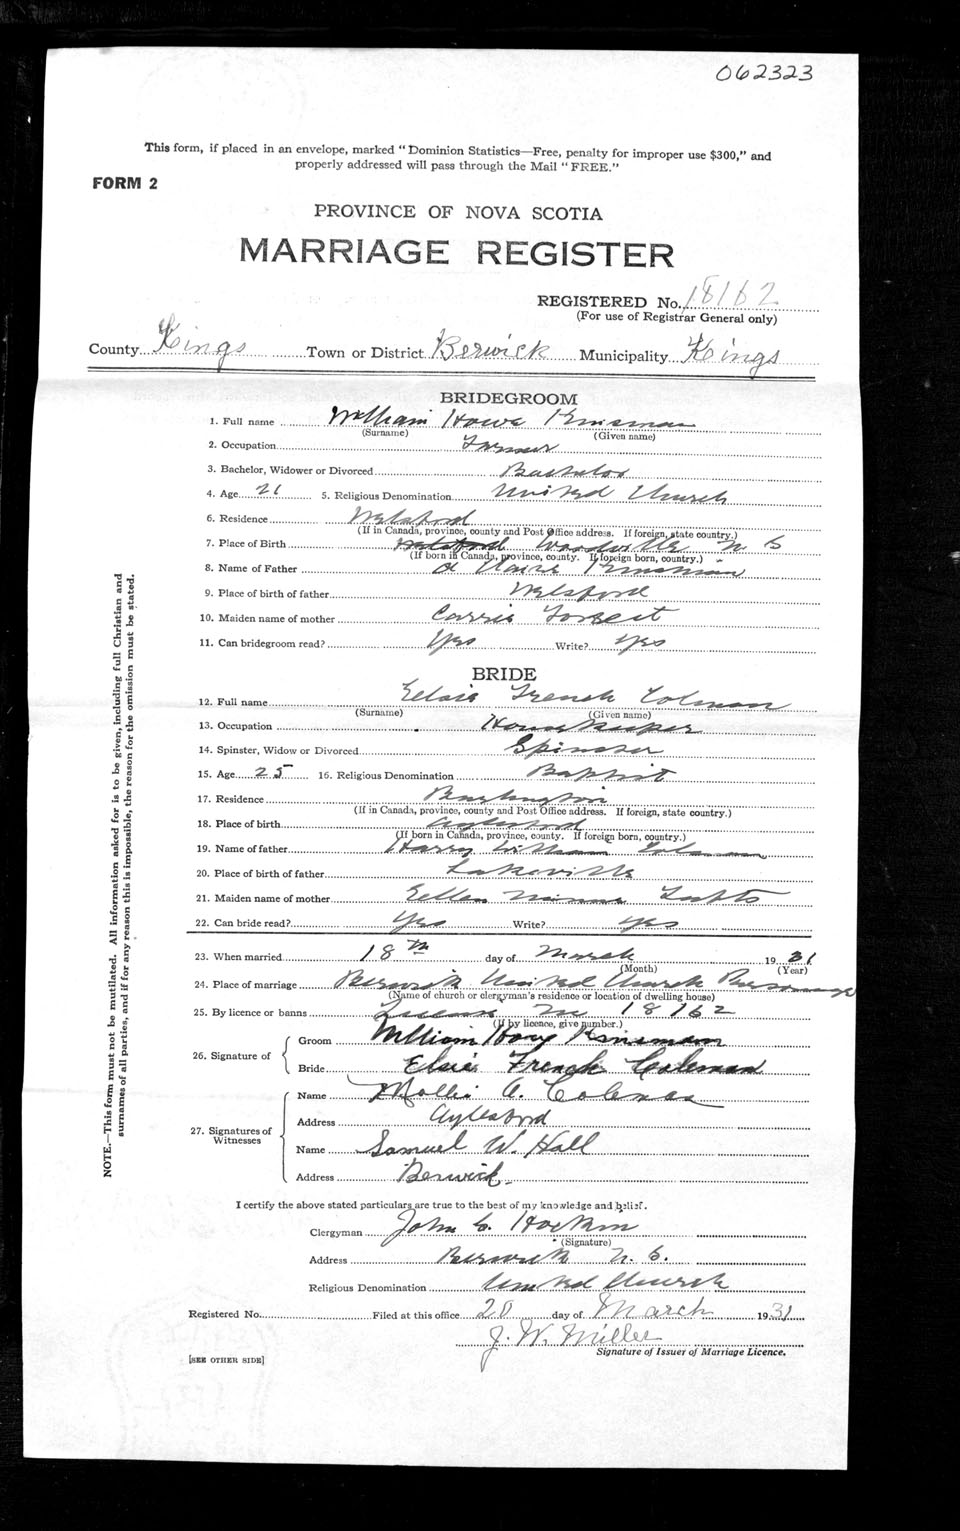 062323
This form, if placed in an envelope, marked "Dominion Statistics—Free, penalty for improper use $300," and
properly addressed will pass through the Mail "FREE."
FORM 2
PROVINCE OF NOVA SCOTIA
MARRIAGE REGISTER
REGISTERED No. 18162
(For use of Registrar General only)
County Kings Town or District Berwick Municipality Kings
BRIDEGROOM
1. Full name William Howe Kinsman
(Surname) (Given name)
2. Occupation Farmer
3. Bachelor, Widower or Divorced Bachelor
4. Age 21 5. Religious Denomination United Church
6. Residence Welsford
(If in Canada, province, county and Post Office address. If foreign, state country.)
7. Place of Birth Welsford Woodville N. S
(If born in Canada, province, county. If foreign born, country.)
8. Name of Father Kinsman
9. Place of birth of father Welsford
10. Maiden name of mother Carrie
11. Can bridegroom read? Yes Write? Yes
BRIDE
12. Full name Elsie French Colman
(Surname) (Given name)
13. Occupation Housekeeper
14. Spinster, Widow or Divorced Spinster
15. Age 25 16. Religious Denomination Baptist
17. Residence Burlington
(If in Canada, province, county and Post Office address. If foreign, state country.)
18. Place of birth Aylesford
(If born in Canada, province, county. If foreign born, country.)
19. Name of father Harry William Colman
20. Place of birth of father Lakeville
21. Maiden name of mother Ellen
22. Can bride read? Yes Write? Yes
23. When married 18th day of March 1931
(Month) (Year)
24. Place of marriage Berwick United Church Parsonage
(Name of church or clergyman's residence or location of dwelling house)
25. By licence or banns License No 18162
(If by licence, give number.)
26. Signature of
Groom William Howe Kinsman
Bride Elsie French Coleman
27. Signatures of Witnesses
Name Mollie A. Coleman
Address Aylesford
Name Samuel W. Hall
Address Berwick
I certify the above stated particulars are true to the best of my knowledge and belief.
Clergyman John C. Hockin
(Signature)
Address Berwick N. S.
Religious Denomination United Church
Registered No. Filed at this office 20 day of March 1931
J. W. Miller
Signature of Issuer of Marriage Licence.
[SEE OTHER SIDE]
NOTE.—This form must not be mutilated. All information asked for is to be given, including full Christian and
surnames of all parties, and if for any reason this is impossible, the reason for the omission must be stated.